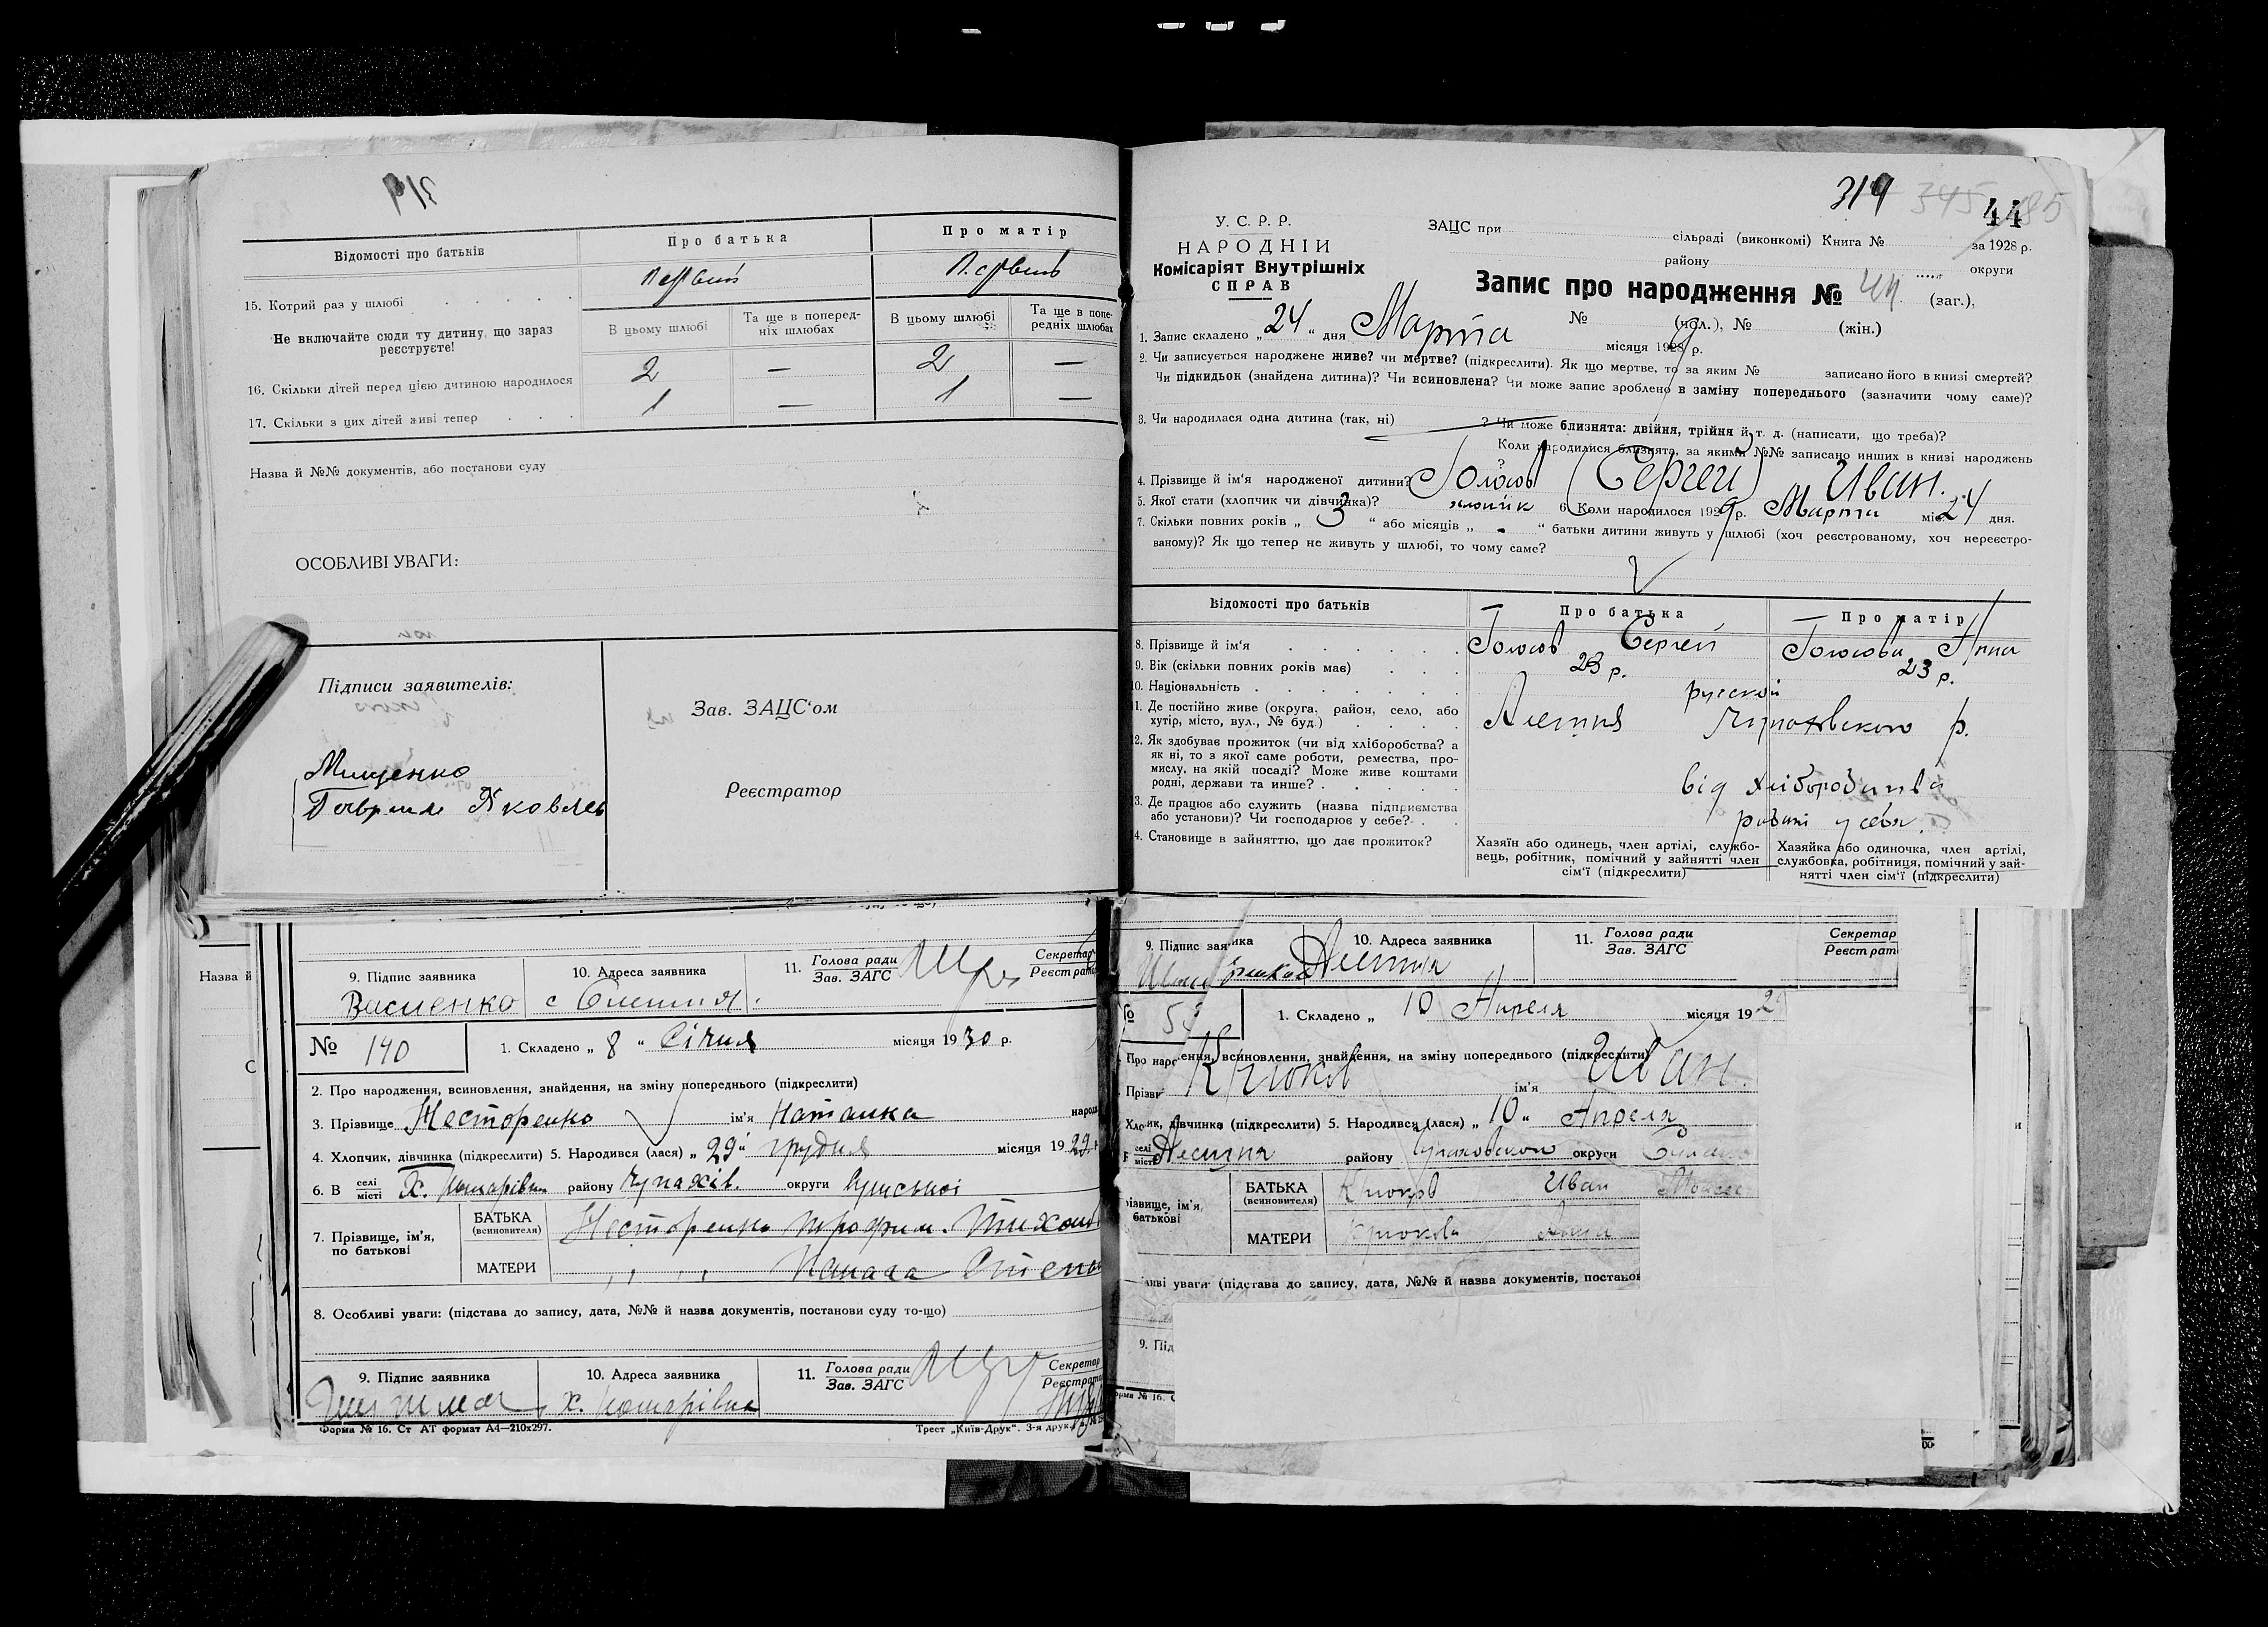 319
Відомості про батьків
Про батька
Про матір
15. Котрий раз у шлюбі
Первий
Первий
Не включайте сюди ту дитину, що зараз реєструєте!
В цьому шлюбі
Та ще в попередніх шлюбах
В цьому шлюбі
Та ще в попередніх шлюбах
16. Скільки дітей перед цією дитиною народилося
2 — 2 —
17. Скільки з цих дітей живі тепер
1 — 1 —
Назва й №№ документів, або постанови суду
ОСОБЛИВІ УВАГИ:
Підписи заявителів:
Мищенко
Гаврииле Яковлев
Зав. ЗАЦС'ом
Реєстратор
Назва й
9. Підпис заявника
10. Адреса заявника
11. Голова ради
Зав. ЗАГС
Секретар
Реєстрат
Василенко
№ 140
1. Складено „ 8 " Січня місяця 1930 р.
2. Про народження, всиновлення, знайдення, на зміну попереднього (підкреслити)
3. Прізвище Несторенко ім'я Наталка
4. Хлопчик, дівчинка (підкреслити) 5. Народився (лася) „ 29 " грудня місяця 1929
6. В селі
місті
Х. району Чупахів. округи Сумської
7. Прізвище, ім'я, по батькові
БАТЬКА
(всиновителя)
Несторенко Трофим
МАТЕРИ
8. Особливі уваги: (підстава до запису, дата, №№ й назва документів, постанови суду то-що)
9. Підпис заявника
10. Адреса заявника
11. Голова ради
Зав. ЗАГС
Секретар
Реєстрат
Форма № 16. Ст АТ формат А4—210х297.
Трест „Київ-Друк". 3-я друк.
319 345 44 85
У. С. Р. Р.
НАРОДНІЙ
Комісаріят Внутрішніх
СПРАВ
ЗАЦС при сільраді (виконкомі) Книга № за 1928 р.
району округи
Запис про народження № 44 (заг.),
№ (чол.), № (жін.)
1. Запис складено „ 24 " дня Марта місяця 1929 р.
2. Чи записується народжене живе? чи мертве? (підкреслити). Як що мертве, то за яким № записано його в книзі смертей?
Чи підкидьок (знайдена дитина)? Чи всиновлена? Чи може запис зроблено в заміну попереднього (зазначити чому саме)?
3. Чи народилася одна дитина (так, ні) ? Чи може близнята: двійня, трійня й т. д. (написати, що треба)?
Коли народилися близнята, за якими №№ записано инших в книзі народжень
?
4. Прізвище й ім'я народженої дитини? Голосов (Сергей) Иван.
5. Якої стати (хлопчик чи дівчинка)? 6. Коли народилося 1929 р. Марта міс. 24 дня.
7. Скільки повних років „ 3 " або місяців „ - " батьки дитини живуть у шлюбі (хоч реєстрованому, хоч нереєстро-
ваному)? Як що тепер не живуть у шлюбі, то чому саме?
Відомості про батьків
Про батька
Про матір
8. Прізвище й ім'я
Голосов Сергей
Голосова Анна
9. Вік (скільки повних років має)
23 р.
23 р.
10. Національність
русской
11. Де постійно живе (округа, район, село, або хутір, місто, вул., № буд.)
Алешня Чупаховского р.
12. Як здобуває прожиток (чи від хліборобства? а як ні, то з якої саме роботи, ремества, промислу, на якій посаді? Може живе коштами родні, держави та инше?
від хліборобитва
13. Де працює або служить (назва підприємства або установи)? Чи господарює у себе?
14. Становище в зайняттю, що дає прожиток?
Хазяїн або одинець, член артілі, службовець, робітник, помічний у зайнятті член сім'ї (підкреслити)
Хазяйка або одиночка, член артілі, службовка, робітниця, помічний у зайнятті член сім'ї (підкреслити)
9. Підпис заявника
10. Адреса заявника
11. Голова ради
Зав. ЗАГС
Секретар
Реєстрат
Алешня
1. Складено „ 10 Апреля місяця 192
Про народження, всиновлення, знайдення, на зміну попереднього (підкреслити)
Крюков ім'я Иван.
Хлопчик, дівчинка (підкреслити) 5. Народився (лася) „ 10 " Апреля
селі
місті
Алешня району Чупаховского округи
БАТЬКА
(всиновителя)
Крюков Иван
МАТЕРИ
Крюкова
уваги (підстава до запису, дата, №№ й назва документів, постано
9. Під